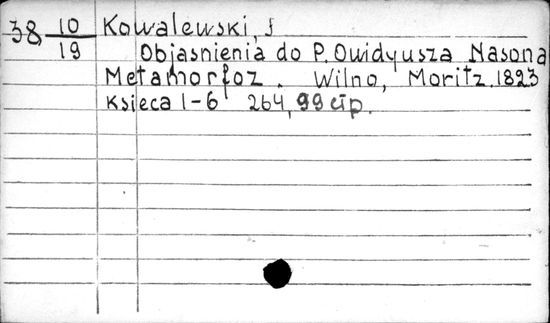 38 10/19 Kowalewski, J
Objasnienia do P. Owidyusza Nasona
Metamorfoz. Wilno, Moritz. 1823
Ksieca 1-6 264, 99 стр.